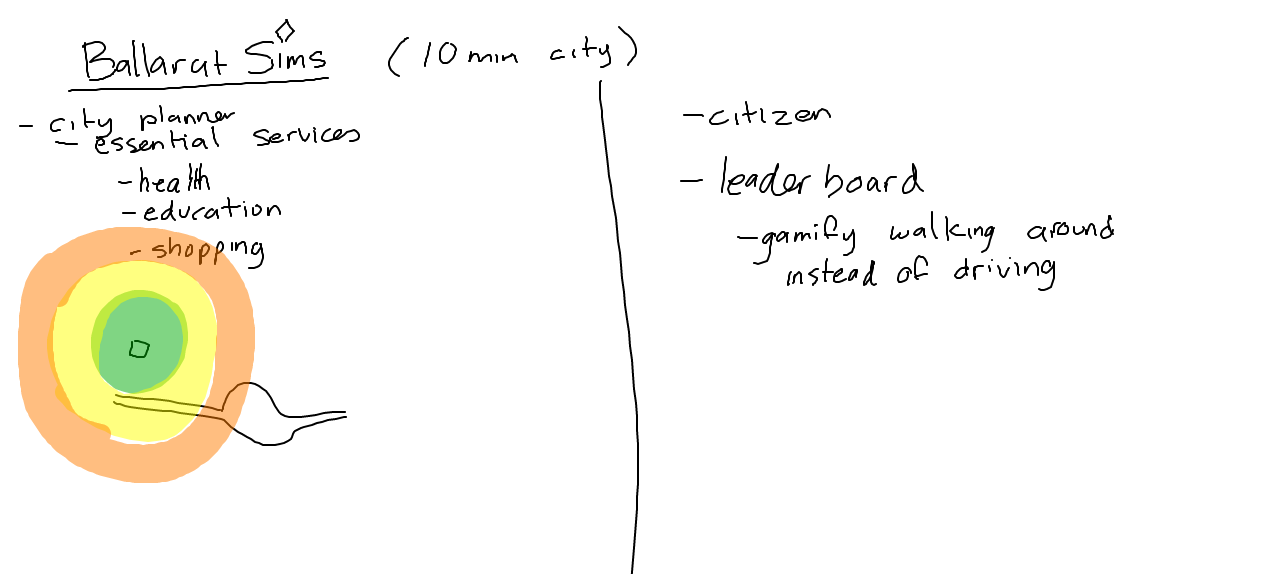 Ballarat Sims (10 min city)
- city planner
- essential services
- health
- education
- shopping
- citizen
- leaderboard
- gamify walking around
instead of driving